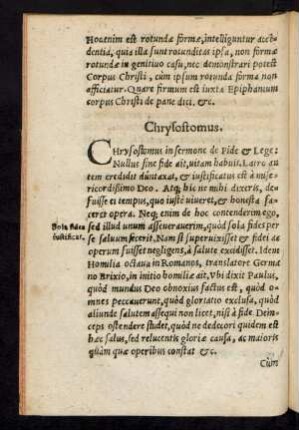 Hoc enim est rotundæ formæ, intelliguntur acci-
dentia, quia illa sunt rotunditas ipsa, non formæ
rotundæ in genitiuo casu, nec demonstrari potest
Corpus Christi, cùm ipsum rotunda forma non
afficiatur. Quare firmum est iuxta Epiphanium
corpus Christi de pane dici, &c.
Chrysostomus.
CHrysostomus in sermone de Fide & Lege:
Nullus sine fide ait, uitam habuit. Latro au
tem credidit duntaxat, & iustificatus est à mise-
ricordissimo Deo. Atq; hic ne mihi dixeris, de-
fuisse ei tempus, quo iustè uiueret, & honesta fa-
ceret opera. Neq; enim de hoc contenderim ego,
Sola fides
iustificat.
sed illud unum asseuerauerim, quòd sola fides per
se saluum fecerit. Nam si superuixisset & fidei ac
operum fuisset negligens, à salute excidisset. Idem
Homilia octaua in Romanos, translatore Germa
no Brixio, in initio homiliæ ait, Vbi dixit Paulus,
quòd mundus Deo obnoxius factus est, quòd om
nes peccauerunt, quòd gloriatio exclusa, quòd
aliunde salutem assequi non licet, nisi à fide. Dein-
ceps ostendere studet, quòd ne dedecori quidem est
hæc salus, sed relucentis gloriæ causa, ac maioris
quàm quæ operibus constat &c.
Cùm